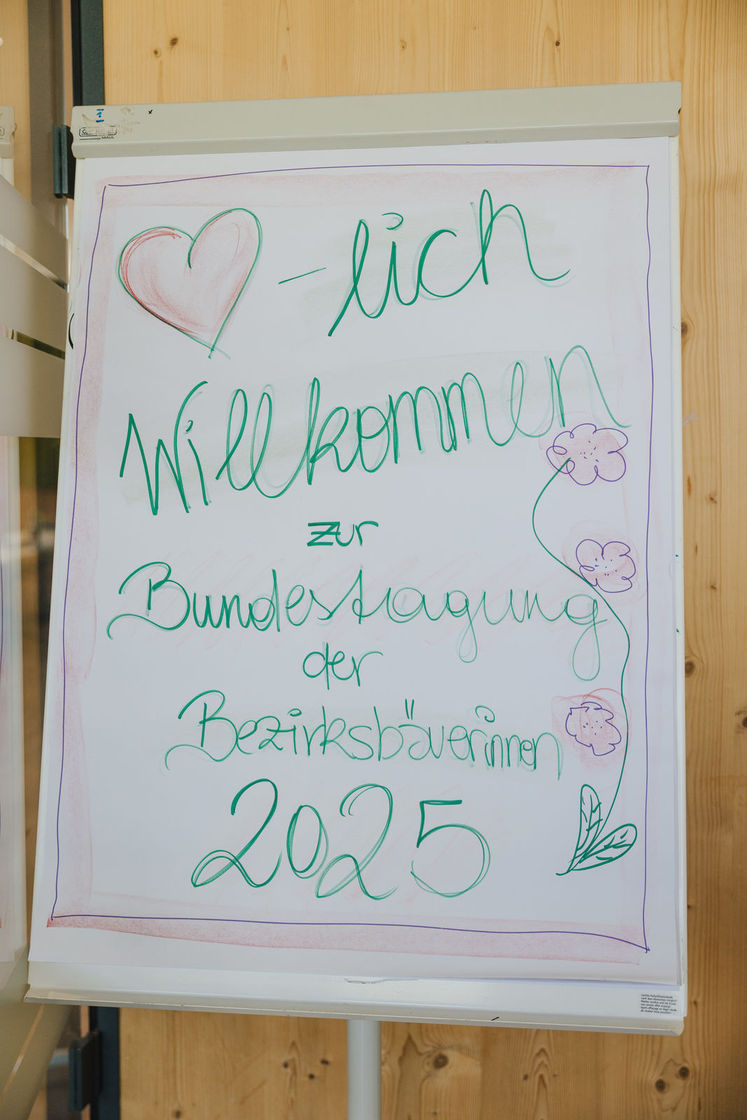 -lich
Willkommen
zur
Bundestagung
der
Bezirksbäuerinnen
2025